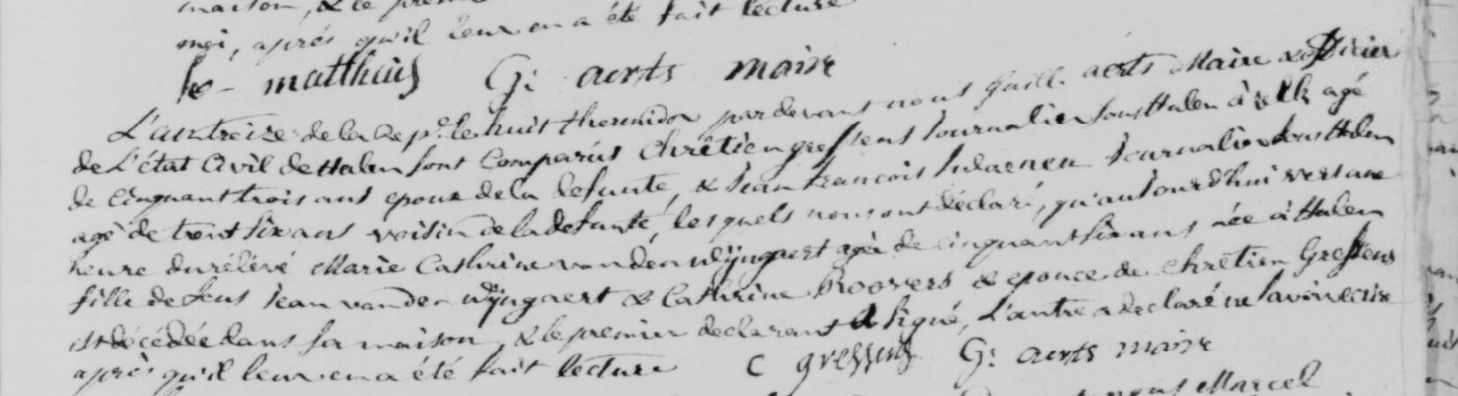 maison, & le premier
moi, après qu'il leur en a été fait lecture
mattheus G: aerts maire
L'an treize de la Rep. le huit thermidor pardevant nous Guill. aerts Maire & officier
de L'état Civil de Halen sont Comparus Chrêtien gressens Journalier sous Halen à agé
de Cinquant trois ans epoux de la defunte, & Jean francois Journalier sous Halen
agé de trent six ans voisin de la defunte, lesquels nous ont déclaré, qu'aujourd'hui vers une
heure du rélévé Marie Cathrine van den wÿngaert agée de cinquant six ans née à Halen
fille de feus Jean van den wÿngaert & Cathrine Roovers & epouce de Chrêtien Gressens
est décédée dans sa maison, & le premier declarant a signé, L'autre a declaré ne savoir ecrire
après qu'il leur en a été fait lecture C gressens G: aerts maire
nous Marcel